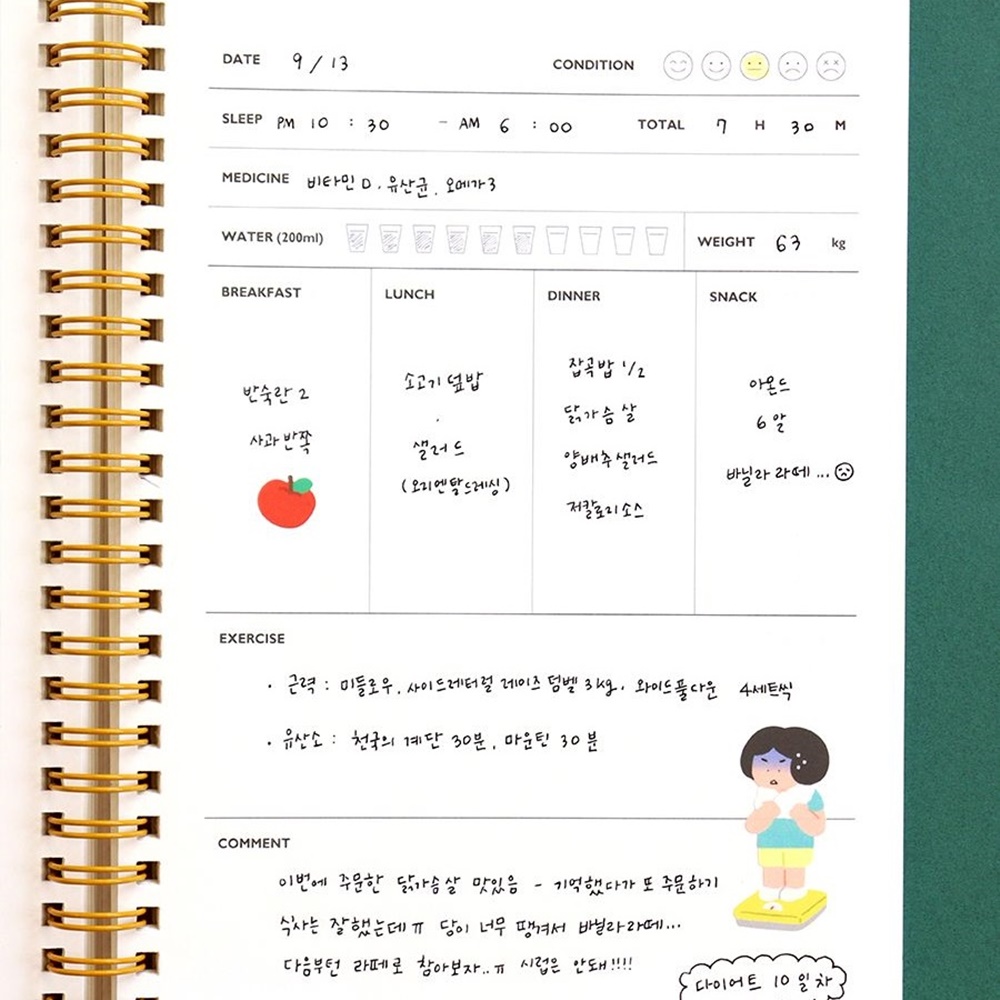 DATE 9 / 13 CONDITION
SLEEP PM 10 : 30 - AM 6 : 00 TOTAL 7 H 30 M
MEDICINE 비타민 D. 유산균. 오메가3
WATER (200ml) WEIGHT 63 kg
BREAKFAST
반숙란 2
사과 반쪽
LUNCH
소고기 덮밥
.
샐러드
(오리엔탈드레싱)
DINNER
잡곡밥 1/2
닭가슴살
양배추샐러드
저칼로리소스
SNACK
아몬드
6알
바닐라 라떼...
EXERCISE
· 근력 : 미들로우. 사이드레터럴 레이즈 덤벨 3kg. 와이드풀다운 4세트씩
· 유산소 : 천국의 계단 30분. 마운틴 30분
COMMENT
이번에 주문한 닭가슴살 맛있음 - 기억했다가 또 주문하기
식사는 잘했는데ㅠ 당이 너무 땡겨서 바닐라라떼...
다음부턴 라떼로 참아보자..ㅠ 시럽은 안돼!!!!
다이어트 10일차